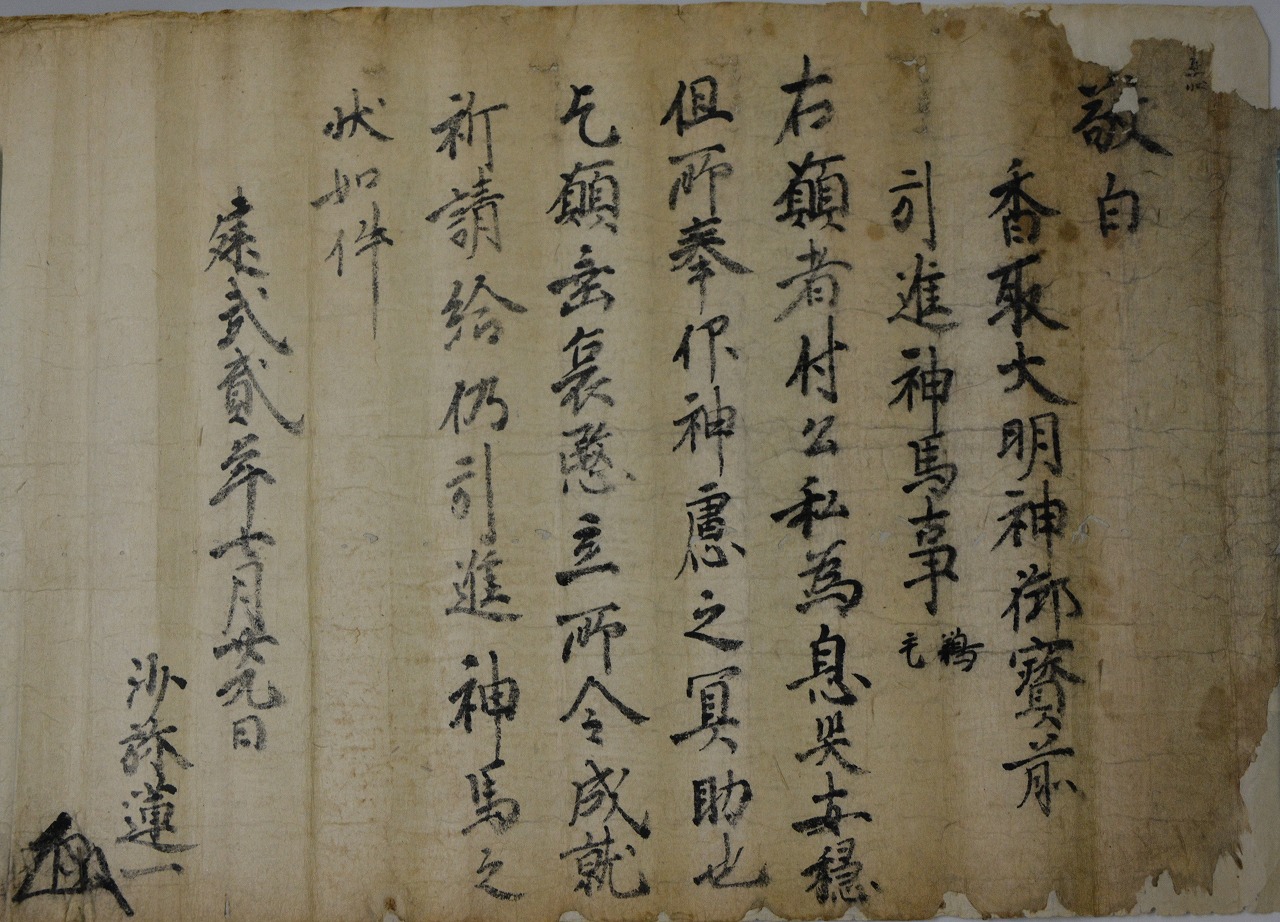 敬白
香取大明神御寳前
引進神馬事 毛
右願者付公私為息災安穏
但所奉仰神慮之冥助也
乞願垂哀愍立所令成就
祈請給仍引進神馬之
状如件
建武貳年七月廿九日
沙弥蓮一